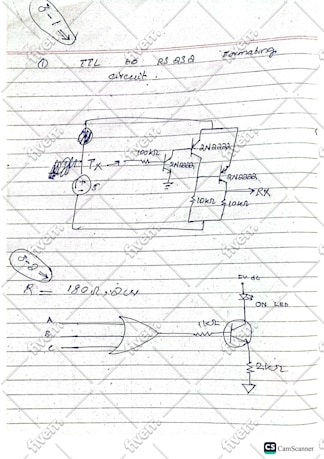 3-1
① TTL to RS 232 Formating
circuit.
Tx
100kΩ
2N2222
2N2222
2N2222
RX
10kΩ
10kΩ
3-2
R = 180Ω
5V dc
ON LED
A
B
C
1kΩ
2kΩ
CS CamScanner